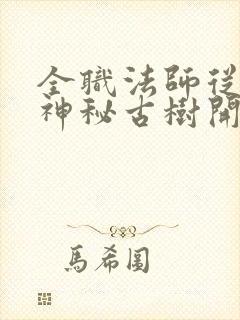 全職法師從
神秘古樹開
馬希圖